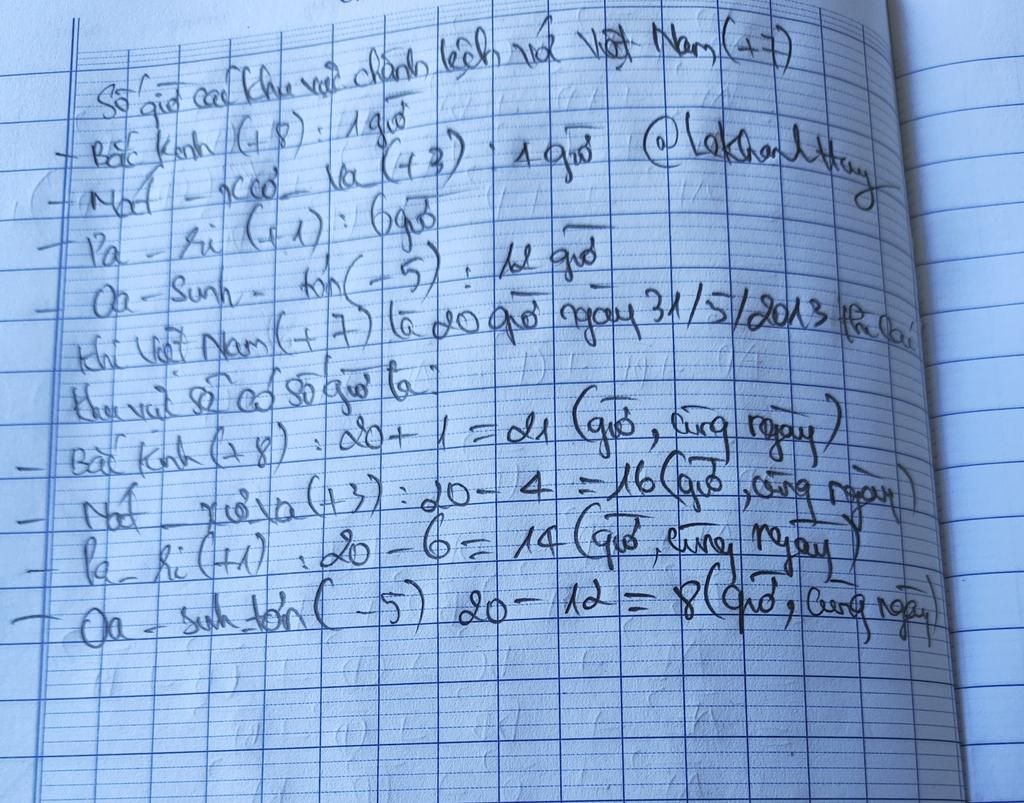 Số giờ các khu vực chênh lệch với Việt Nam (+7)
- Bắc Kinh (+8) : 1 giờ
- Mát - xcơ - va (+3) : 4 giờ @LakhanhHay
- Pa - ri (+1) : 6 giờ
Oa - Sinh - tơn (-5) : 12 giờ
Khi Việt Nam (+7) là 20 giờ ngày 31/5/2013 thì các
khu vực sẽ có số giờ là:
- Bắc Kinh (+8) : 20 + 1 = 21 (giờ, cùng ngày)
- Mát - xcơ va (+3) : 20 - 4 = 16 (giờ, cùng ngày)
- Pa - ri (+1) : 20 - 6 = 14 (giờ, cùng ngày)
- Oa - sinh tơn (-5) 20 - 12 = 8 (giờ, cùng ngày)